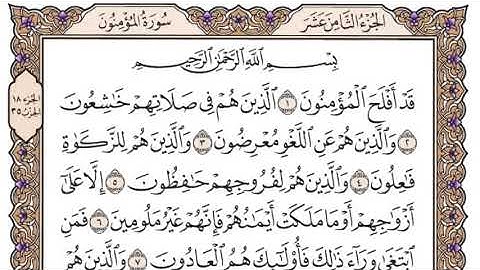 سُورَةُ المُؤْمِنُونَ الجُزْءُ الثَّامِنَ عَشَرَ
بِسْمِ اللَّهِ الرَّحْمَٰنِ الرَّحِيمِ
قَدْ أَفْلَحَ الْمُؤْمِنُونَ ١ الَّذِينَ هُمْ فِي صَلَاتِهِمْ خَاشِعُونَ
٢ وَالَّذِينَ هُمْ عَنِ اللَّغْوِ مُعْرِضُونَ ٣ وَالَّذِينَ هُمْ لِلزَّكَوٰةِ
فَاعِلُونَ ٤ وَالَّذِينَ هُمْ لِفُرُوجِهِمْ حَافِظُونَ ٥ إِلَّا عَلَىٰ
أَزْوَاجِهِمْ أَوْ مَا مَلَكَتْ أَيْمَانُهُمْ فَإِنَّهُمْ غَيْرُ مَلُومِينَ ٦ فَمَنِ
ابْتَغَىٰ وَرَاءَ ذَٰلِكَ فَأُولَٰئِكَ هُمُ الْعَادُونَ ٧ وَالَّذِينَ هُمْ
الجزء ١٨
الحزب ٣٥